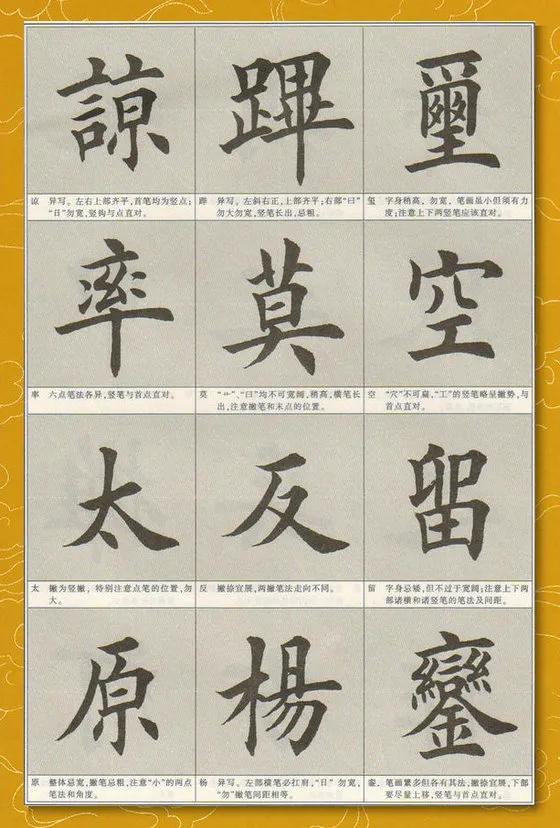 諒 蹕 璽
谅 异写。左右上部齐平,首笔均为竖点;
“日”勿宽,竖钩与点直对。
跸 异写。左斜右正,上部齐平;右部“曰”
勿大勿宽,竖笔长出,忌粗。
玺 字身稍高,勿宽,笔画虽小但须有力
度;注意上下两竖笔应该直对。
率 莫 空
率 六点笔法各异,竖笔与首点直对。
莫 “艹”、“曰”均不可宽阔,稍高,横笔长
出,注意撇笔和末点的位置。
空 “穴”不可扁,“工”的竖笔略呈撇势,与
首点直对。
太 反 留
太 撇为竖撇,特别注意点笔的位置,勿
大。
反 撇捺宜展,两撇笔法走向不同。
留 字身忌矮,但不过于宽阔;注意上下两
部诸横和诸竖笔的笔法及间距。
原 楊 鑾
原 整体忌宽,撇笔忌粗,注意“小”的两点
笔法和角度。
杨 异写。左部横笔必扛肩,“日”勿宽,
“勿”撇笔间距相等。
銮 笔画繁多但各有其法,撇捺宜展,下部
要尽量上移,竖笔与首点直对。